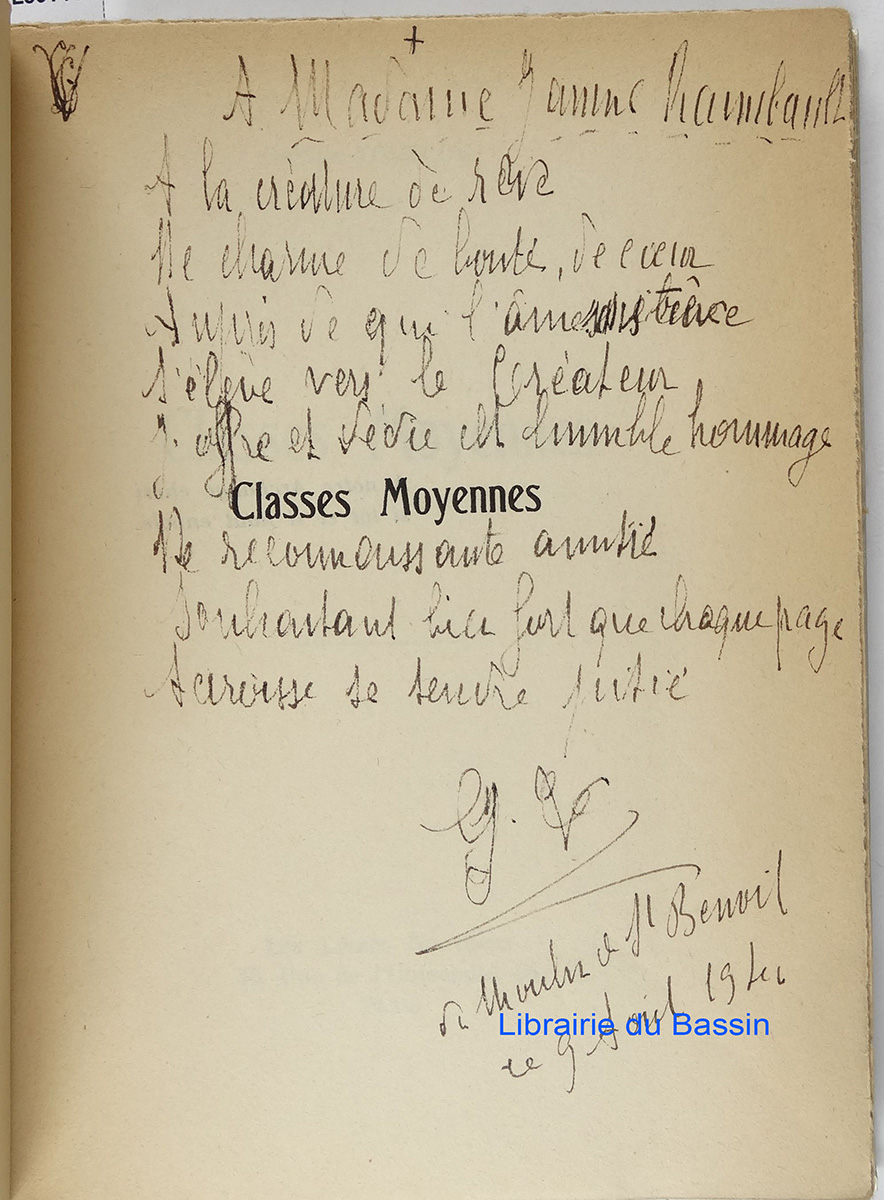 +
A Madame Janine Raimbault
A la créature de rêve
De charme de bonté, de cœur
Auprès de qui l'âme sans trêve
S'élève vers le Créateur
J'offre et dédie cet humble hommage
Classes Moyennes
De reconnaissante amitié
Souhaitant bien fort que chaque page
Accroisse sa tendre pitié
G. V
du Moulin de St Benoit
ce 9 Avril
Librairie du Bassin